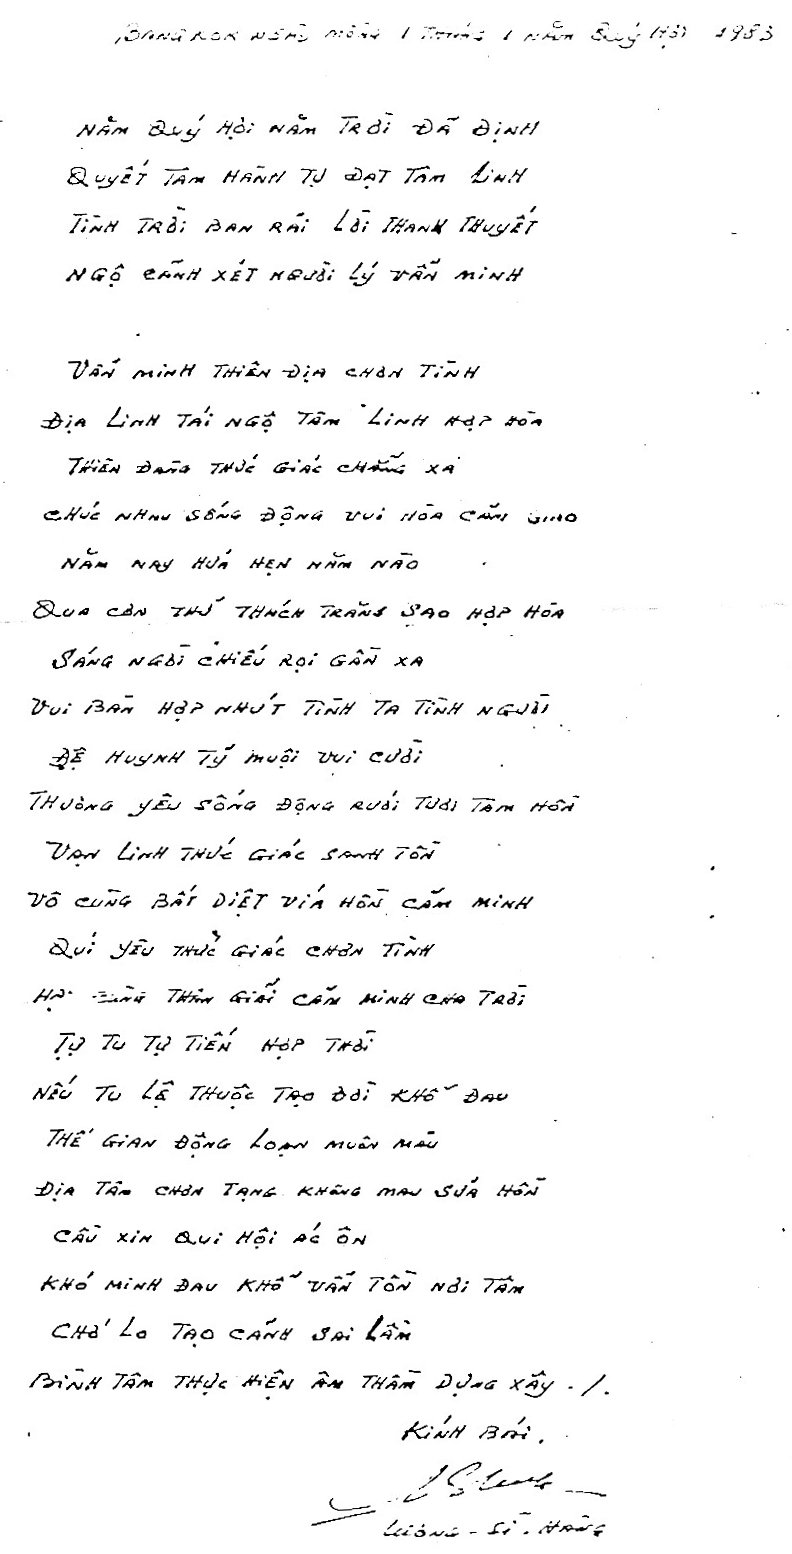 BANGKOK NGÀY MÙNG 1 THÁNG 1 NĂM QUÝ HỢI 1983
NĂM QUÝ HỢI NĂM TRỜI ĐÃ ĐỊNH
QUYẾT TÂM HÀNH TỰ ĐẠT TÂM LINH
TÌNH TRỜI BAN RẢI LỜI THANH THUYẾT
NGỘ CẢNH XÉT NGƯỜI LÝ VẪN MINH
VẪN MINH THIÊN ĐỊA CHƠN TÌNH
ĐỊA LINH TÁI NGỘ TÂM LINH HỢP HÒA
THIÊN ĐÀNG THỨC GIÁC CHẲNG XA
CHÚC NHAU SỐNG ĐỘNG VUI HÒA CẢM GIAO
NĂM NAY HỨA HẸN NĂM NÀO
QUA CƠN THỬ THÁCH TRĂNG SAO HỢP HÒA
SÁNG NGỜI CHIẾU RỌI GẦN XA
VUI BÀN HỢP NHỨT TÌNH TA TÌNH NGƯỜI
ĐỆ HUYNH TỶ MUỘI VUI CƯỜI
THƯƠNG YÊU SỐNG ĐỘNG RƯỚI TƯƠI TÂM HỒN
VẠN LINH THỨC GIÁC SANH TỒN
VÔ CÙNG BẤT DIỆT VÍA HỒN CẢM MINH
QUÍ YÊU THỨC GIÁC CHƠN TÌNH
THÂN GIẢI CẢM MINH CHA TRỜI
TỰ TU TỰ TIẾN HỢP THỜI
NẾU TU LỆ THUỘC TẠO ĐỜI KHỔ ĐAU
THẾ GIAN ĐỘNG LOẠN MUÔN MÀU
ĐỊA TÂM CHƠN TẠNG KHÔNG MAU SỬA HỒN
CẦU XIN QUI HỘI ÁC ÔN
KHÓ MINH ĐAU KHỔ VẪN TỒN NƠI TÂM
CHỚ LO TẠO CẢNH SAI LẦM
BÌNH TÂM THỰC HIỆN ÂM THẦM DỰNG XÂY ./.
KÍNH BÁI.
LƯƠNG - SĨ - HẰNG